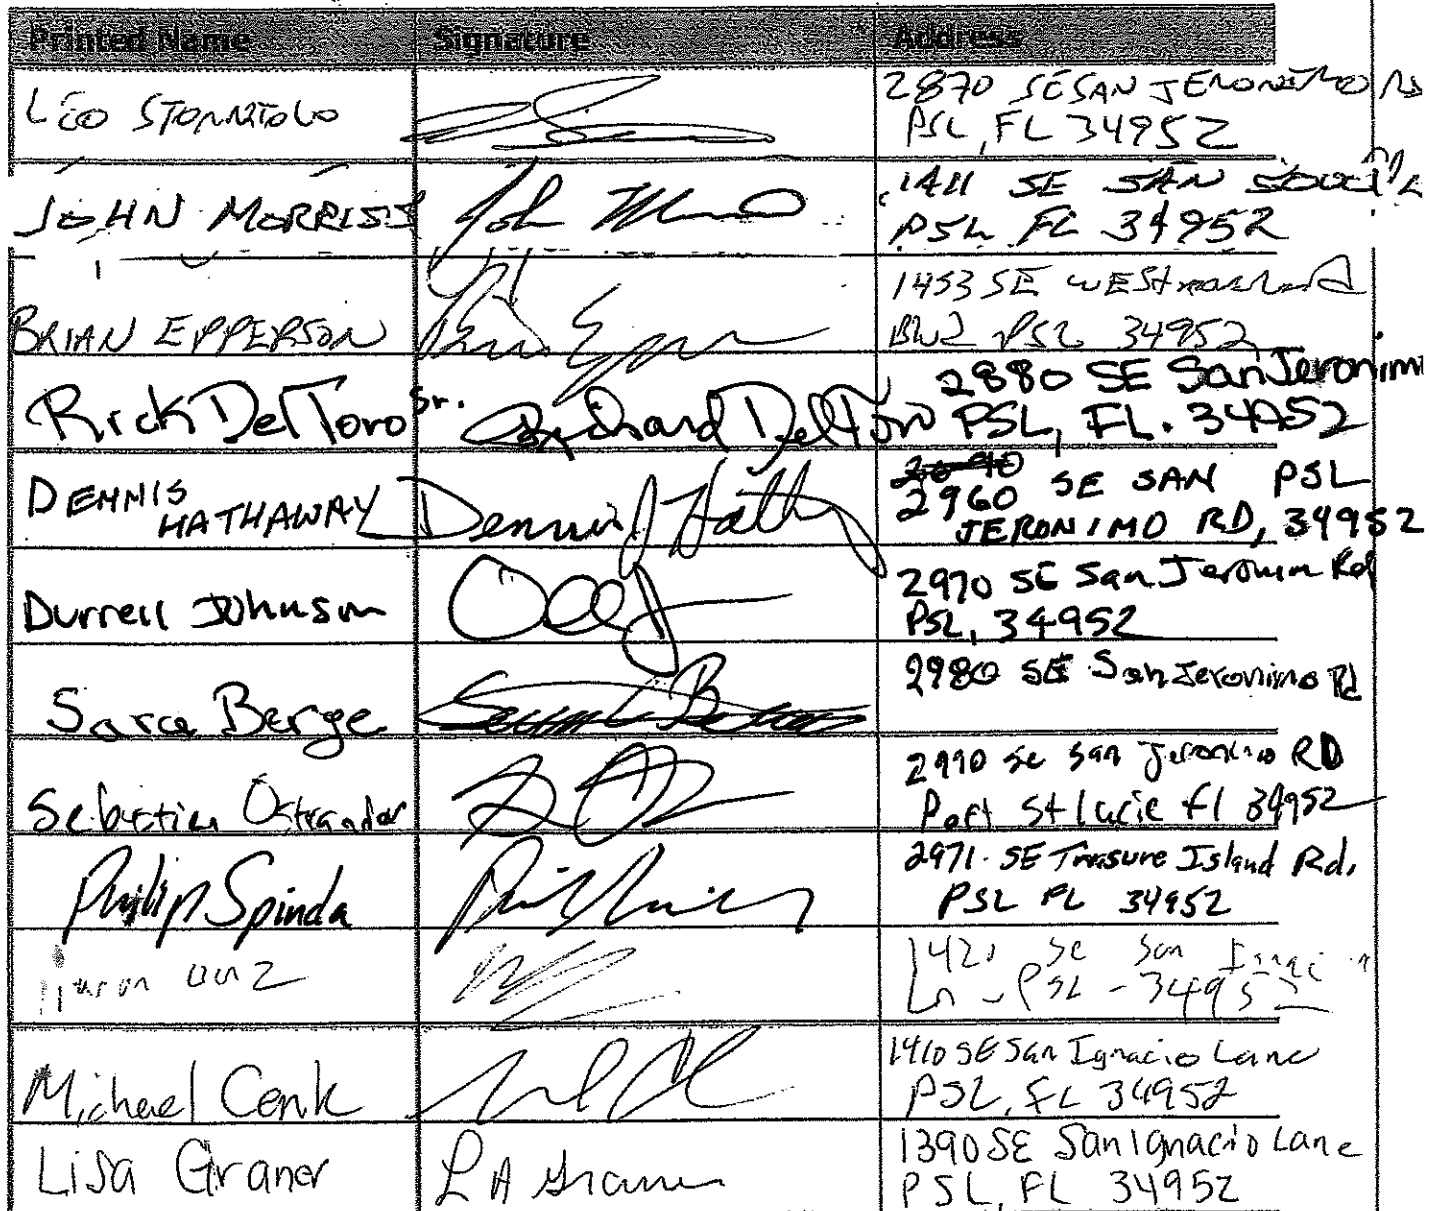 Printed Name Signature Address
LEO 2870 SE SAN JERONIMO RD
PSL, FL 34952
JOHN MORRISS John 1411 SE SAN SOUCI
PSL FL 34952
BRIAN EPPERSON 1453 SE WEStmoreland
Blvd PSL 34952
Rick Del Toro Sr. Richard Del Toro 2880 SE San Jeronimo
PSL, FL. 34952
DENNIS HATHAWAY Dennis J Hathaway 2960 SE SAN PSL
JERONIMO RD, 34952
Durrell Johnson 2970 SE San Jeronimo Rd
PSL, 34952
Sara Berge 2980 SE San Jeronimo Rd
Sebastian Ostrander 2990 Se San Jeronimo RD
Port St lucie fl 34952
Philip Spinda 2971 SE Treasure Island Rd.
PSL FL 34952
Se San
Ln - PSL - 34952
Michael Cenk 1410 SE San Ignacio Lane
PSL, FL 34952
Lisa Graner L A Graner 1390 SE San Ignacio Lane
PSL, FL 34952